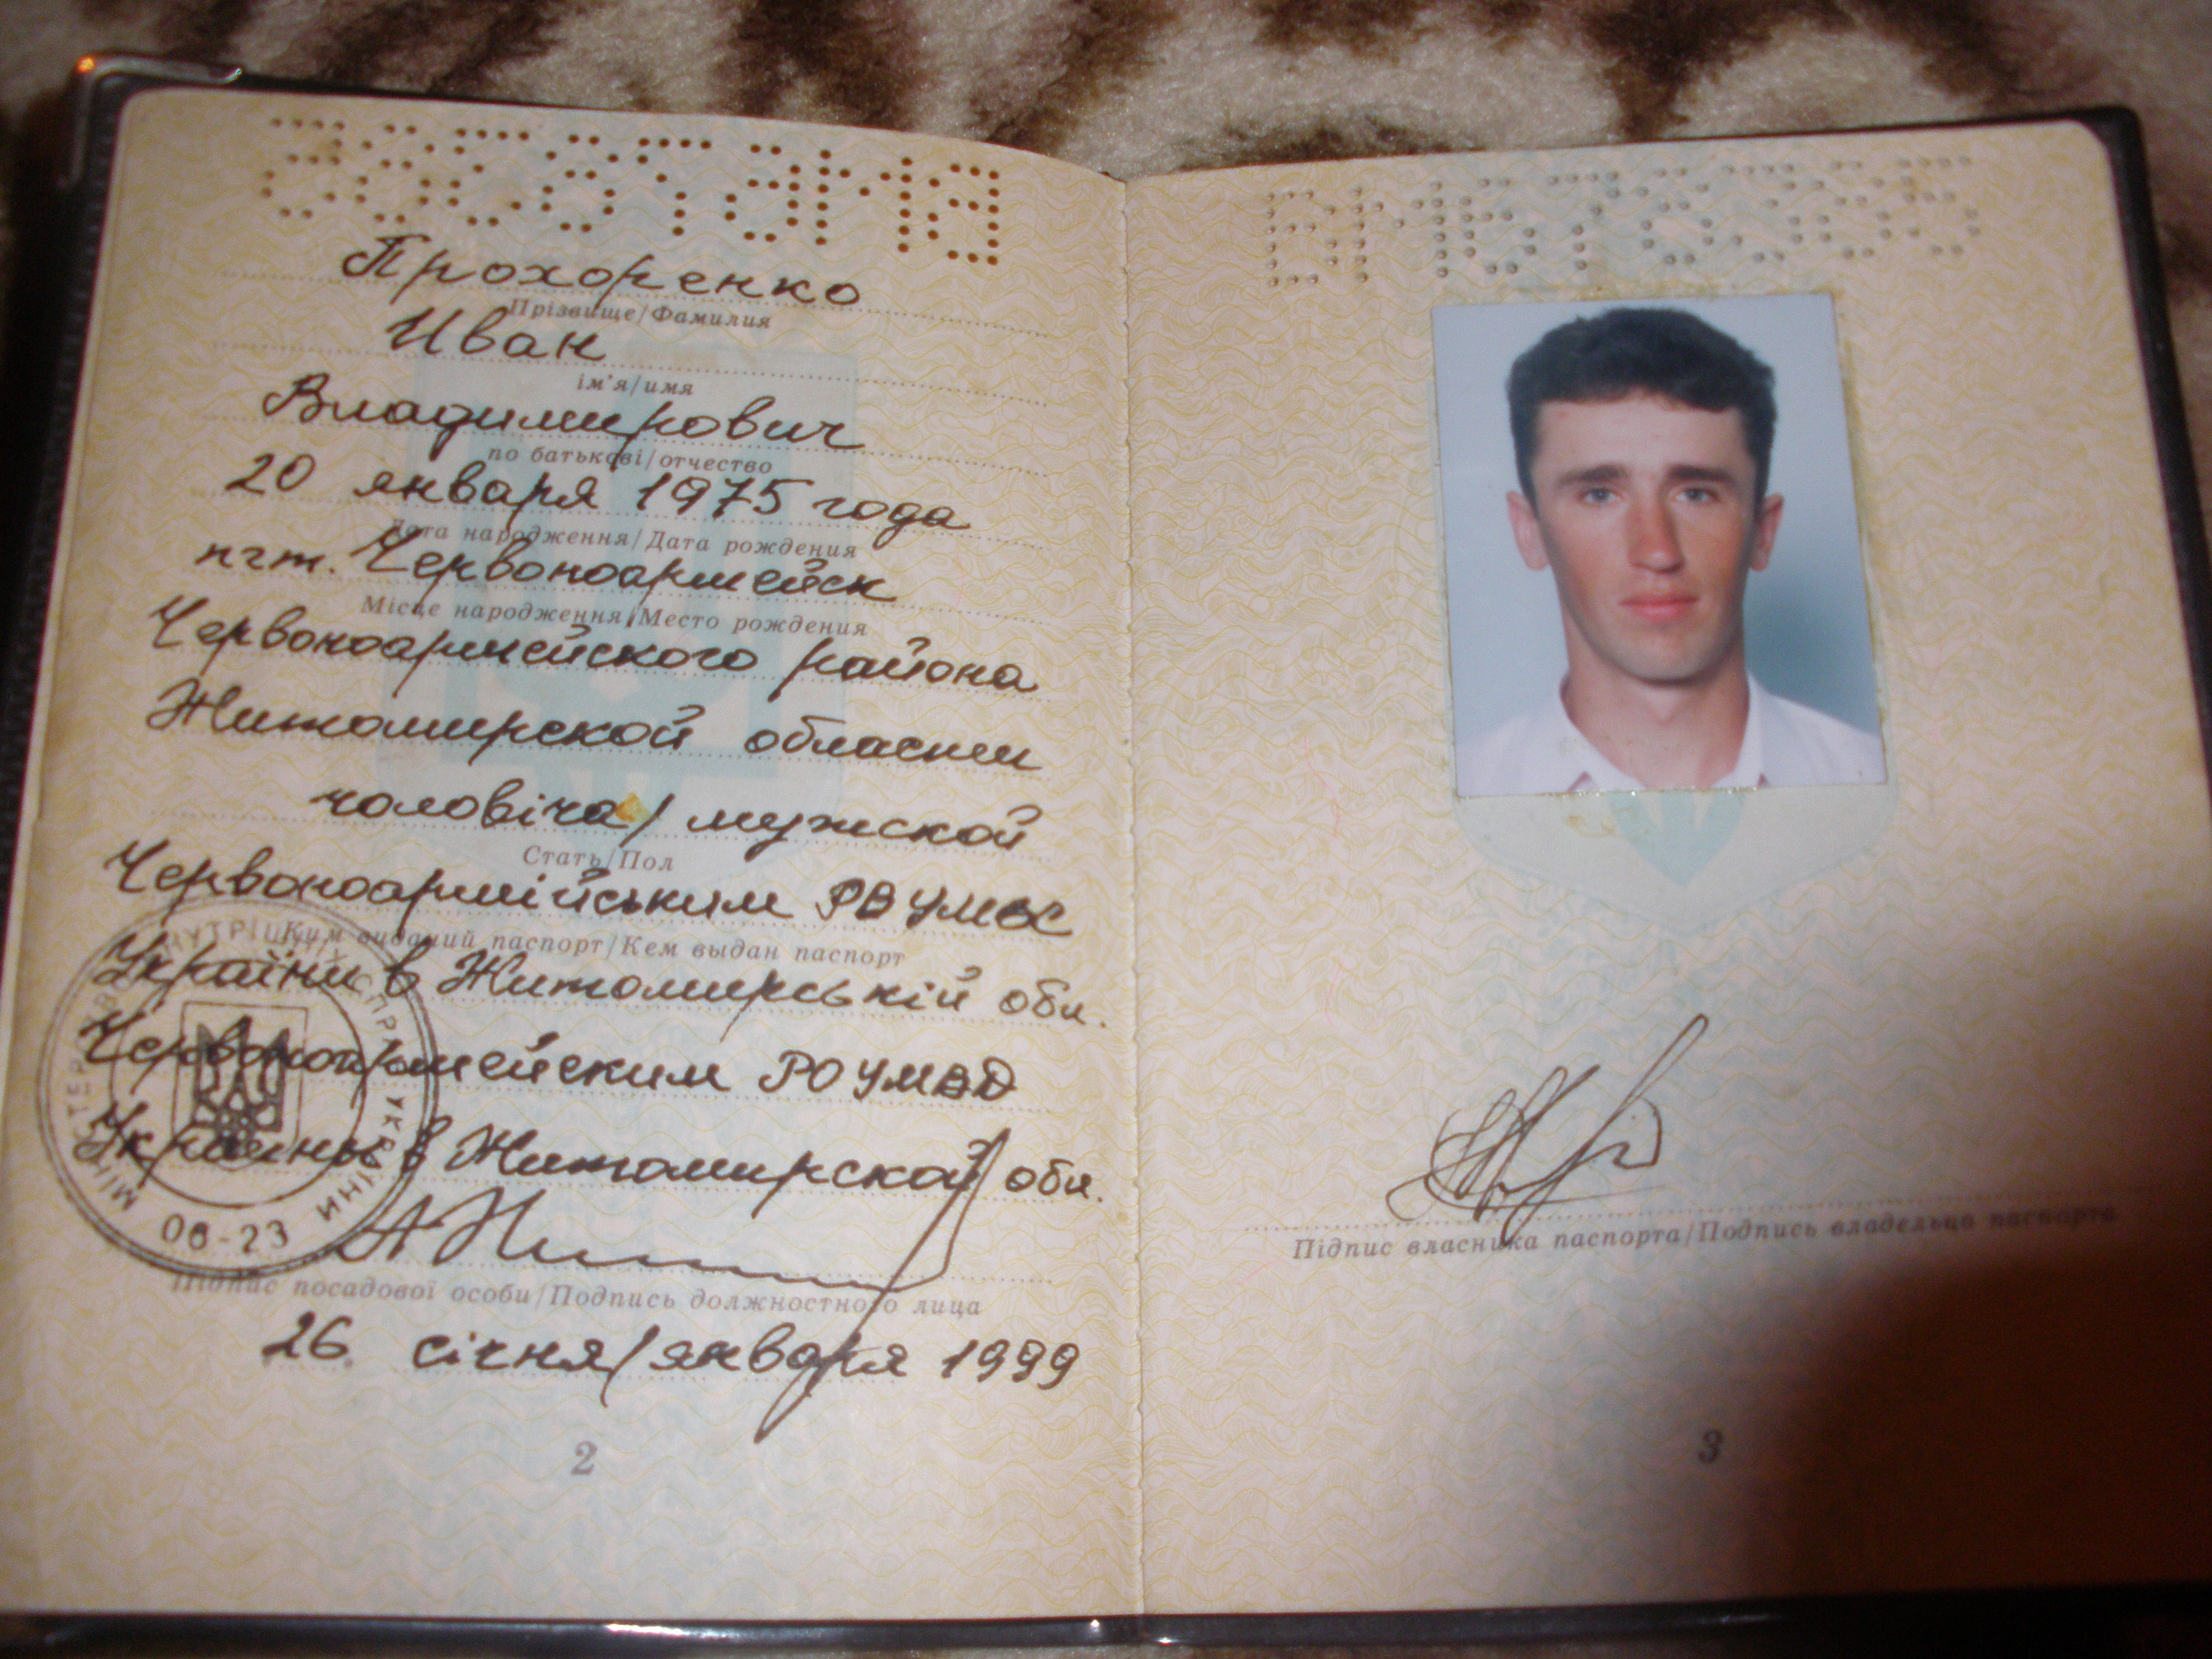 Прохоренко
Прізвище/Фамилия
Иван
ім'я/имя
Владимирович
по батькові/отчество
20 января 1975 года
Дата народження/Дата рождения
пгт. Червоноармейск
Місце народження/Место рождения
Червоноармейского района
Житомирской области
чоловіча/мужской
Стать/Пол
Червоноармійським РВ УМВС
Ким виданий паспорт/Кем выдан паспорт
України в Житомирській обл.
Червоноармейским РО УМВД
Украины в Житомирской обл.
06-23
Підпис посадової особи/Подпись должностного лица
26 січня/января 1999
2
Підпис власника паспорта/Подпись владельца паспорта
3